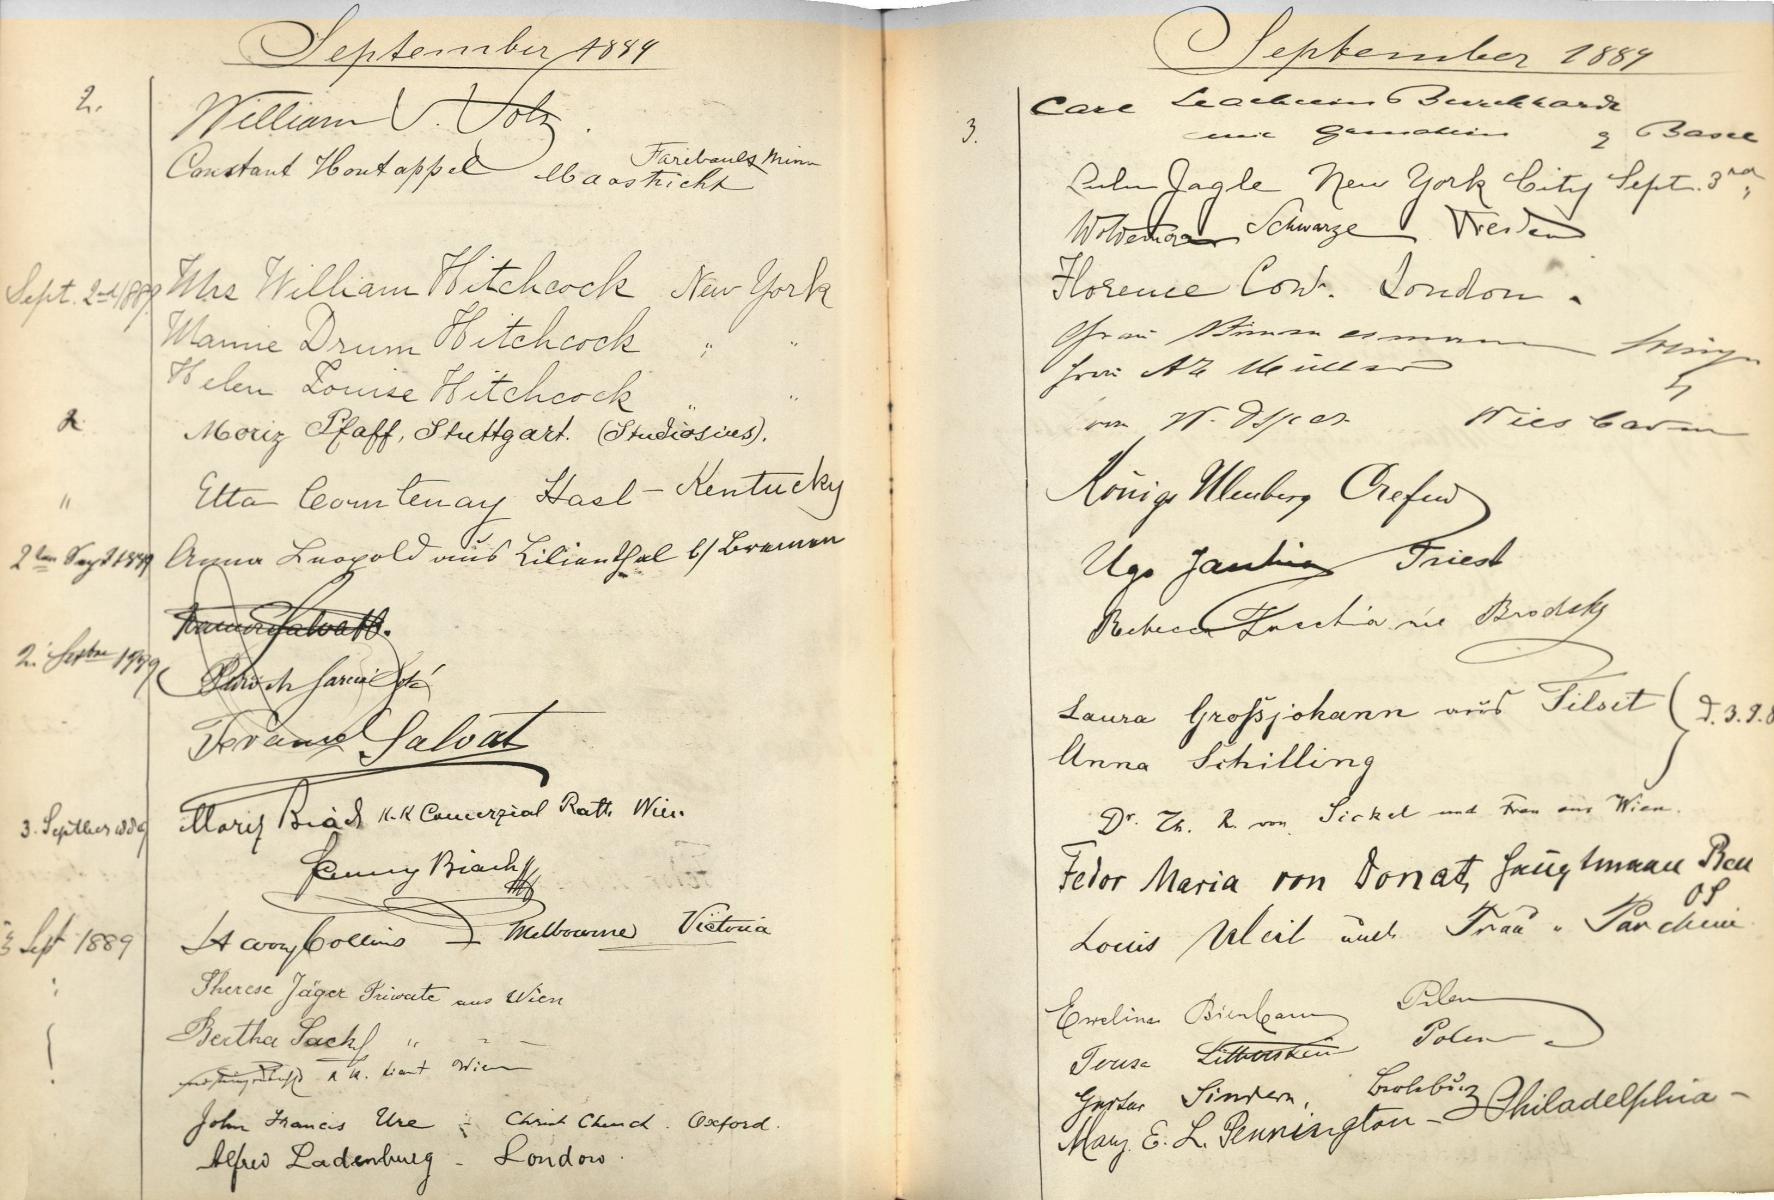 September 1889
2.
William V. Volz.
Faribault, Minn
Constant Hontappel Maastricht
Sept. 2nd 1889. Mrs William Hitchcock New York
Mamie Drum Hitchcock " "
Helen Louise Hitchcock " "
2. Moriz Pfaff, Stuttgart. (Studiosius).
" Etta Courtenay Hasl - Kentucky
2ten Sept 1889 Anna Leopold aus Lilienthal b/ Bremen
Ramon Salvatt.
2. Septbre 1889
Garcia
Salvat
3. Septber 1889 Moriz Biach K.K Comerzial Rath Wien.
Jenny Biach
3 Sept 1889 Harry Collins - Melbourne Victoria
Therese Jäger Private aus Wien
Bertha Sachs " "
Wien
John Francis Ure - Christ Church. Oxford.
Alfred Ladenburg - London.
September 1889
3.
Carl Burckhardt
mit Gemahlin Basel
Lulu Jagle New York City Sept. 3rd
Woldemar Schwarze Dresden
Florence Cow. London.
Frau
Frau Müller
von W. Wiesbaden
Königs Ulenberg Crefeld
Ugo Triest
Rebecca née Brodsky
Laura Großjohann aus Tilsit ( d. 3.9.8
Anna Schilling
Dr. Th. R. von Sickel und Frau aus Wien.
Fedor Maria von Donat, Hauptmann Beu
OS
Louis Weil und Frau " Parchim
Ewelina Bienbaum Polen
Teresa Polen
Gustav Sindern,
Mary. E. L. Pennington - Philadelphia -